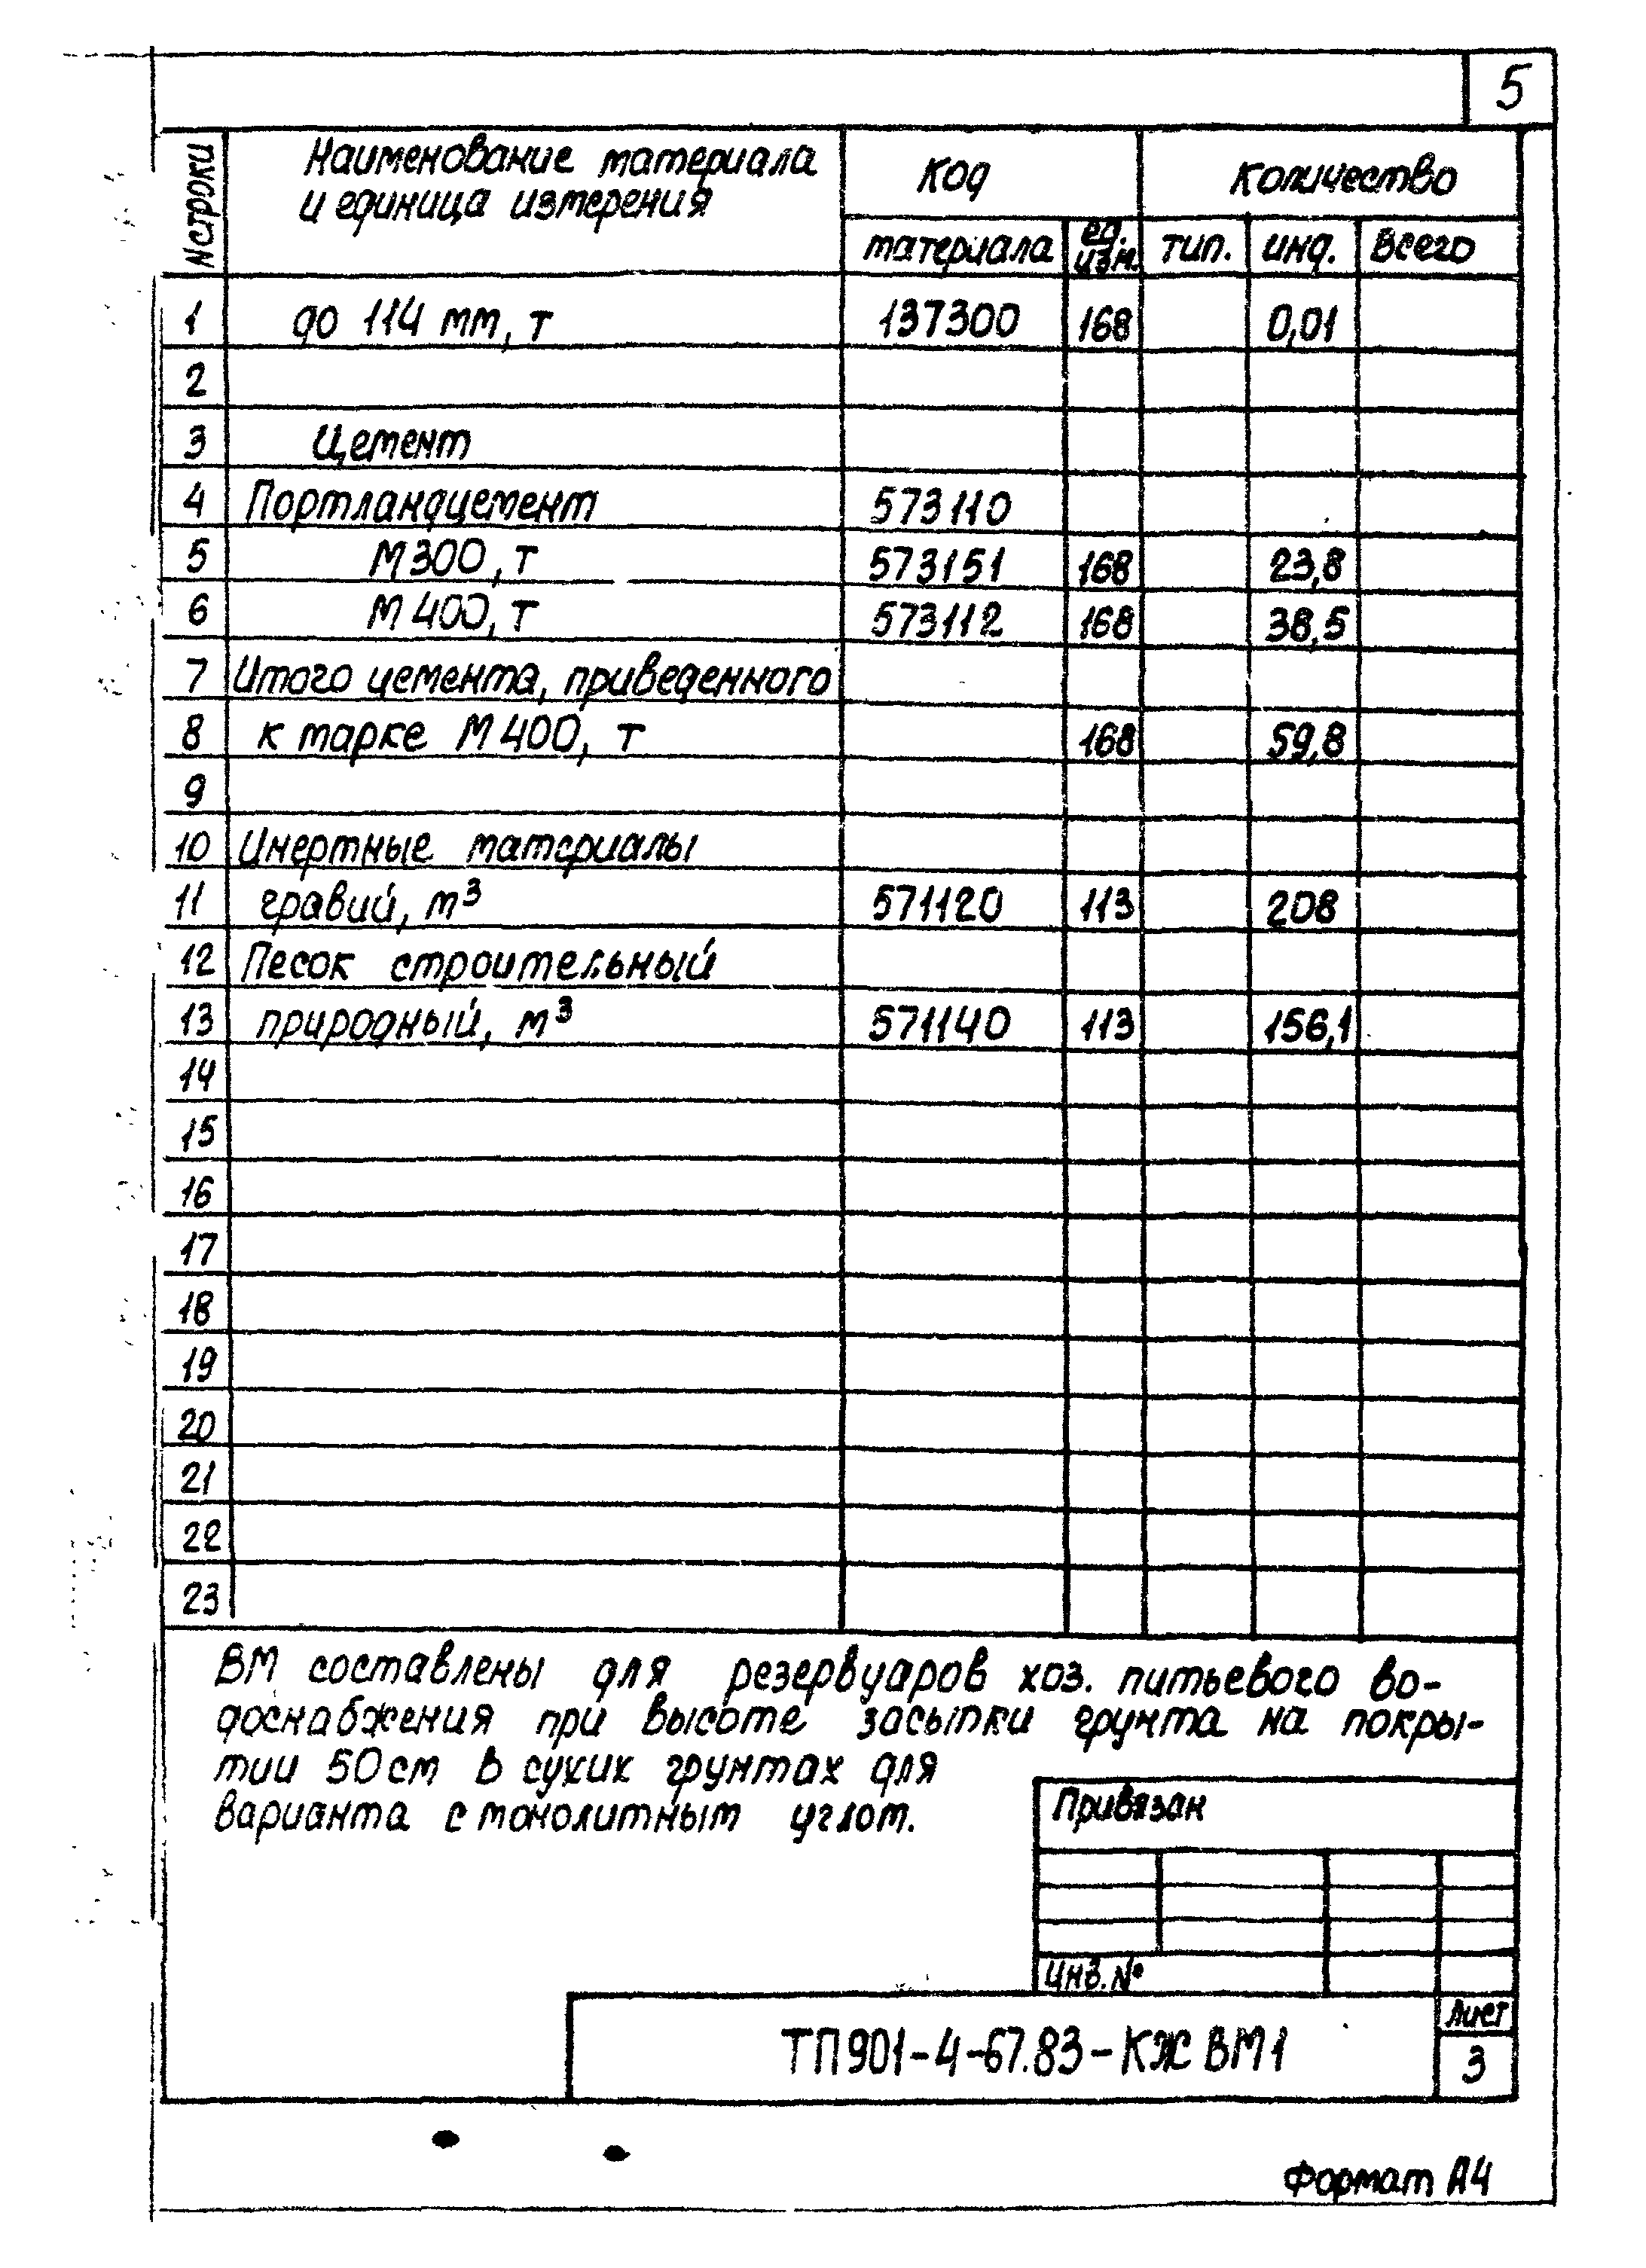 5
N строки
Наименование материала
и единица измерения
Код
Количество
материала
ед. изм.
тип.
инд.
Всего
1 до 114 мм, т 137300 168 0,01
2
3 Цемент
4 Портландцемент 573110
5 М300, т 573151 168 23,8
6 М400, т 573112 168 38,5
7 Итого цемента, приведенного
8 к марке М400, т 168 59,8
9
10 Инертные материалы
11 гравий, м³ 571120 113 208
12 Песок строительный
13 природный, м³ 571140 113 156,1
14
15
16
17
18
19
20
21
22
23
ВМ составлены для резервуаров хоз. питьевого во-
доснабжения при высоте засыпки грунта на покры-
тии 50см в сухих грунтах для
варианта с монолитным углом.
Привязан
Инв. №
ТП901-4-67.83-КЖ ВМ1
Лист
3
Формат А4